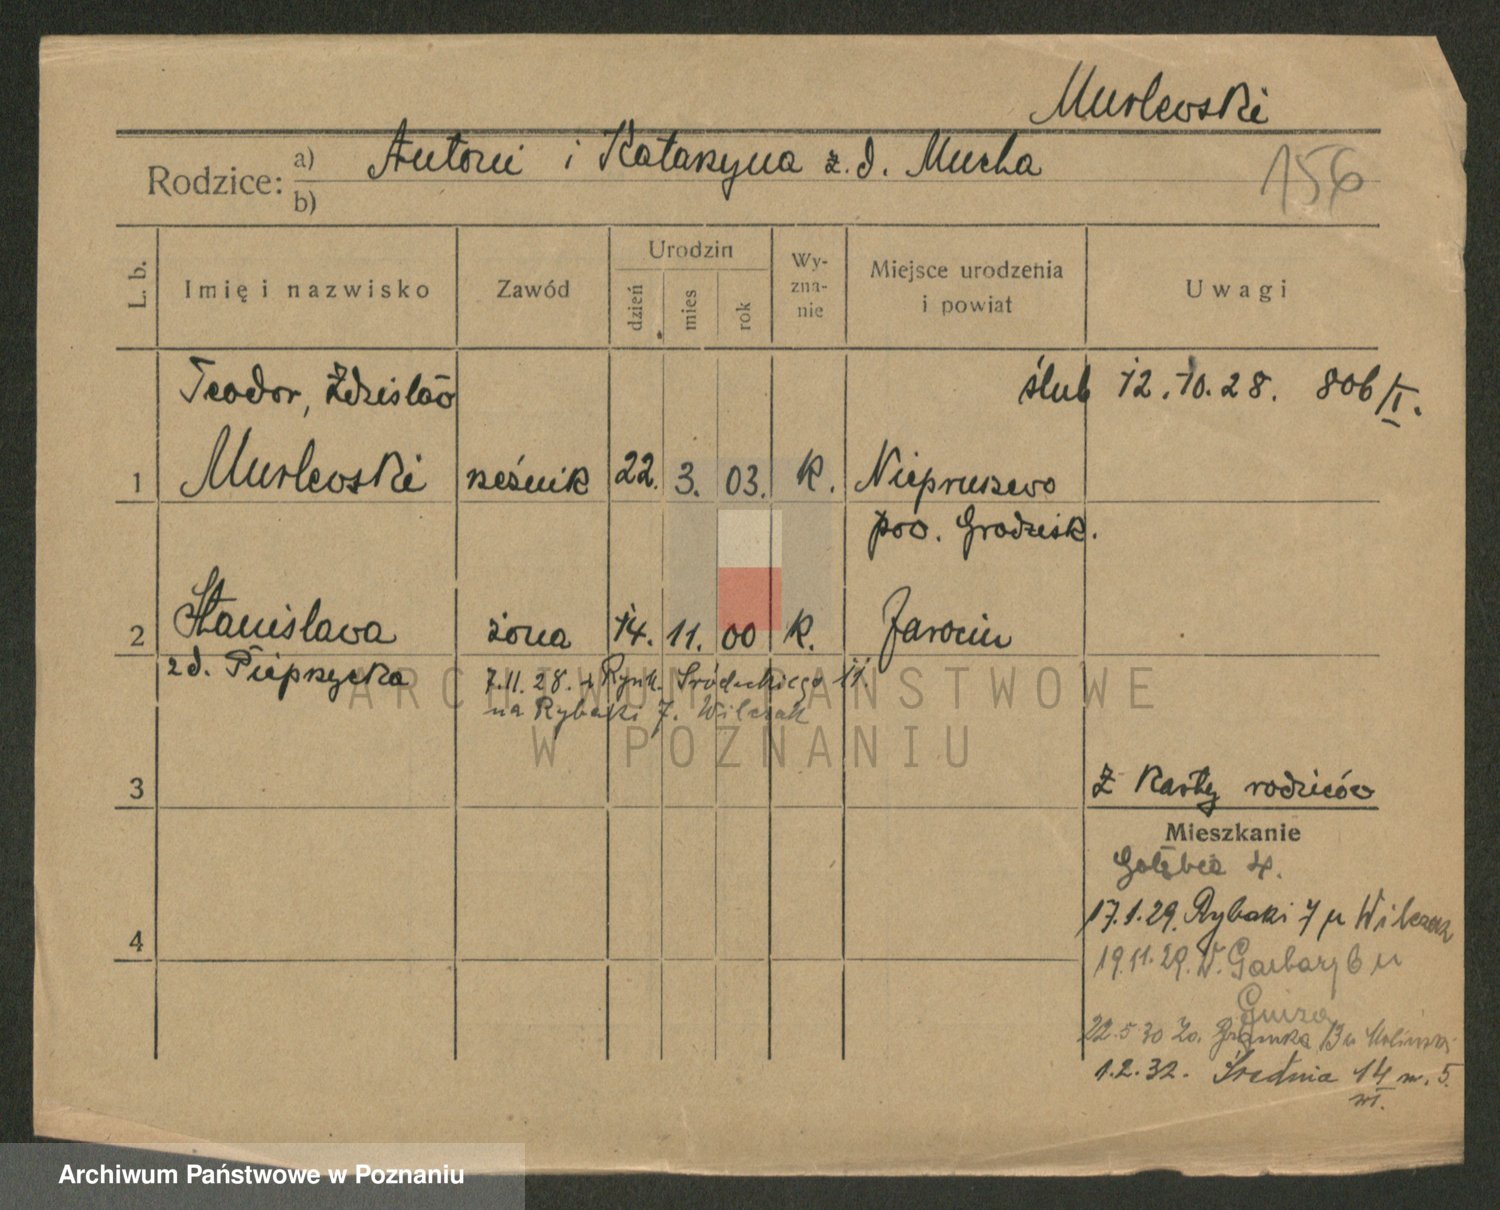 Murlewski
Rodzice: a) Antoni i Katarzyna z.d. Mucha
b)
156
L. b.
Imię i nazwisko
Zawód
Urodzin
dzień
mies
rok
Wy-
zna-
nie
Miejsce urodzenia
i powiat
Uwagi
Teodor, Zdzisław
ślub 12.10.28. 806/I.
1 Murlewski rzeźnik 22. 3. 03. k. Niepruszewo
pow. Grodzisk.
2 Stanisława żona 14. 11. 00 k. Jarocin
zd. Pieprzycka
7.11.28. z Rynk. Śródeckiego 11.
na Rybaki 7. Wilczak
ARCHIWUM PAŃSTWOWE
W POZNANIU
3
Z karty rodziców
Mieszkanie
Gołębia 4.
17.1.29. Rybaki 7 u Wilczak
4
19.11.29. W. Garbary 6 u
22.5.30 Bramka 13 u
1.2.32. Średnia 14 m. 5.
Archiwum Państwowe w Poznaniu